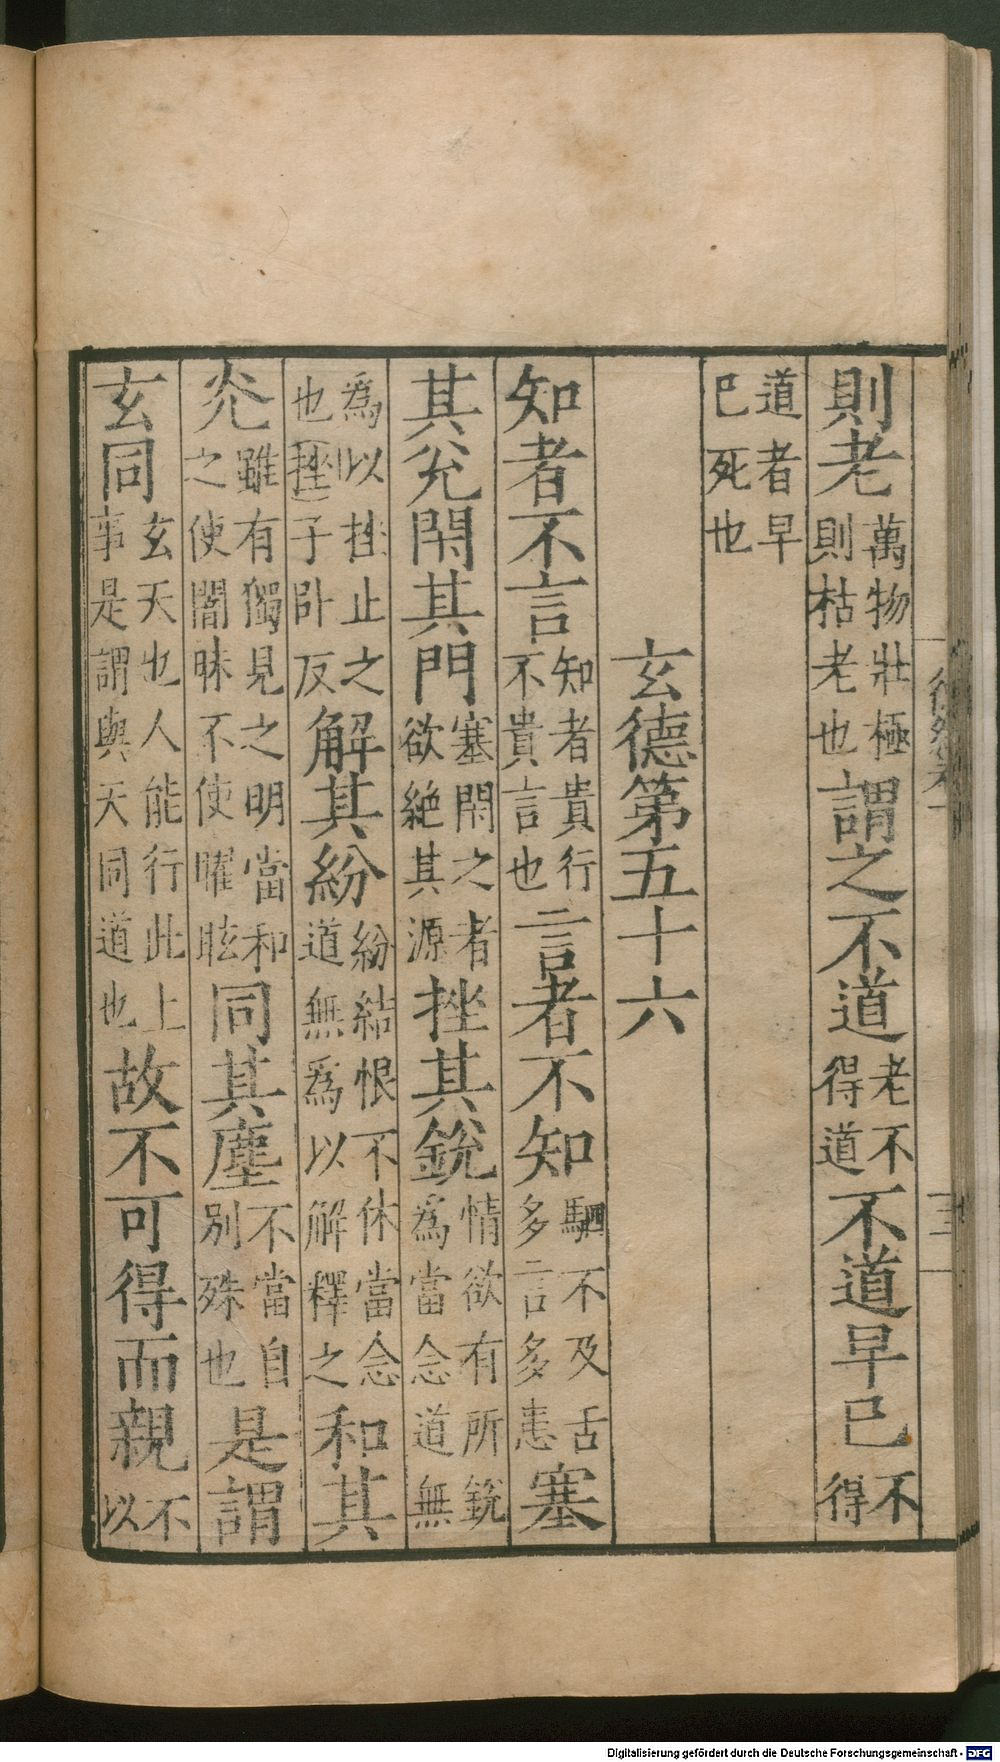 則老萬物壯極則枯老也謂之不道老不得道不道早已不得
道者早已死也
玄德第五十六
知者不言知者貴行不貴言也言者不知駟不及舌多言多患塞
其兊閇其門塞閇之者欲絶其源挫其銳情欲有所銳爲當念道無
爲以挫止之也挫子卧反解其紛紛結恨不休當念道無爲以解釋之和其
光雖有獨見之明當和之使闇昧不使曜眩同其塵不當自別殊也是謂
玄同玄天也人能行此上事是謂與天同道也故不可得而親不以
Digitalisierung gefördert durch die Deutsche Forschungsgemeinschaft - DFG